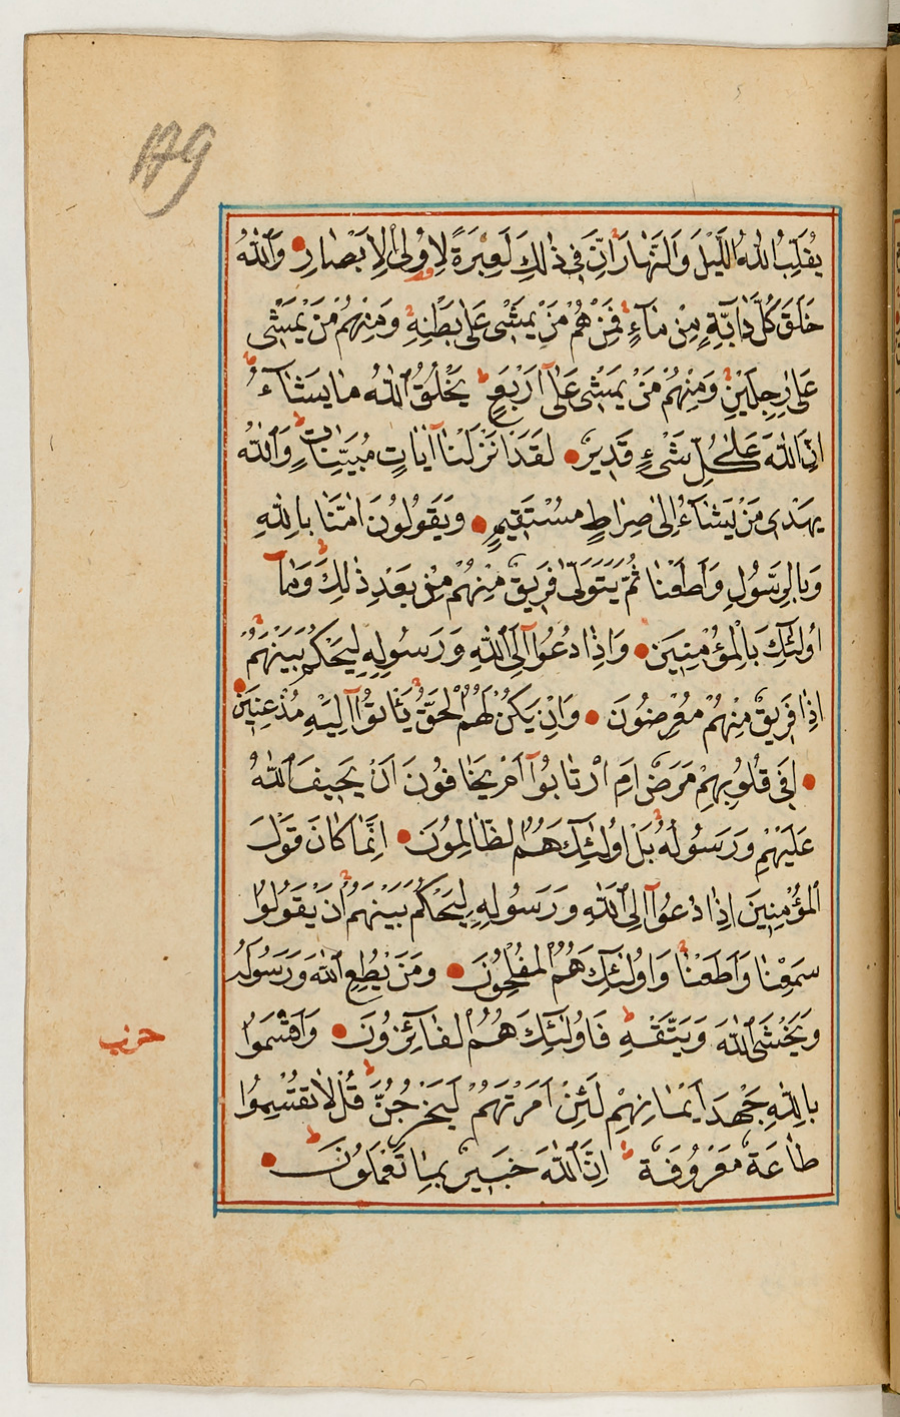 179
يُقَلِّبُ اللّٰهُ الَّيْلَ وَالنَّهَارَ اِنَّ فِي ذٰلِكَ لَعِبْرَةً لِاُولِى الْاَبْصَارِ وَاللّٰهُ
خَلَقَ كُلَّ دَابَّةٍ مِنْ مَاءٍ فَمِنْهُمْ مَنْ يَمْشِى عَلٰى بَطْنِهِ وَمِنْهُمْ مَنْ يَمْشِى
عَلٰى رِجْلَيْنِ وَمِنْهُمْ مَنْ يَمْشِى عَلٰى اَرْبَعٍ يَخْلُقُ اللّٰهُ مَا يَشَاءُ
اِنَّ اللّٰهَ عَلٰى كُلِّ شَىْءٍ قَدِيرٌ لَقَدْ اَنْزَلْنَا اٰيَاتٍ مُبَيِّنَاتٍ وَاللّٰهُ
يَهْدِى مَنْ يَشَاءُ اِلٰى صِرَاطٍ مُسْتَقِيمٍ وَيَقُولُونَ اٰمَنَّا بِاللّٰهِ
وَبِالرَّسُولِ وَاَطَعْنَا ثُمَّ يَتَوَلّٰى فَرِيقٌ مِنْهُمْ مِنْ بَعْدِ ذٰلِكَ وَمَا
اُولٰئِكَ بِالْمُؤْمِنِينَ وَاِذَا دُعُوا اِلَى اللّٰهِ وَرَسُولِهِ لِيَحْكُمَ بَيْنَهُمْ
اِذَا فَرِيقٌ مِنْهُمْ مُعْرِضُونَ وَاِنْ يَكُنْ لَهُمُ الْحَقُّ يَأْتُوا اِلَيْهِ مُذْعِنِينَ
اَفِى قُلُوبِهِمْ مَرَضٌ اَمِ ارْتَابُوا اَمْ يَخَافُونَ اَنْ يَحِيفَ اللّٰهُ
عَلَيْهِمْ وَرَسُولُهُ بَلْ اُولٰئِكَ هُمُ الظَّالِمُونَ اِنَّمَا كَانَ قَوْلَ
الْمُؤْمِنِينَ اِذَا دُعُوا اِلَى اللّٰهِ وَرَسُولِهِ لِيَحْكُمَ بَيْنَهُمْ اَنْ يَقُولُوا
سَمِعْنَا وَاَطَعْنَا وَاُولٰئِكَ هُمُ الْمُفْلِحُونَ وَمَنْ يُطِعِ اللّٰهَ وَرَسُولَهُ
وَيَخْشَ اللّٰهَ وَيَتَّقْهِ فَاُولٰئِكَ هُمُ الْفَائِزُونَ وَاَقْسَمُوا
حزب
بِاللّٰهِ جَهْدَ اَيْمَانِهِمْ لَئِنْ اَمَرْتَهُمْ لَيَخْرُجُنَّ قُلْ لَا تُقْسِمُوا
طَاعَةٌ مَعْرُوفَةٌ اِنَّ اللّٰهَ خَبِيرٌ بِمَا تَعْمَلُونَ